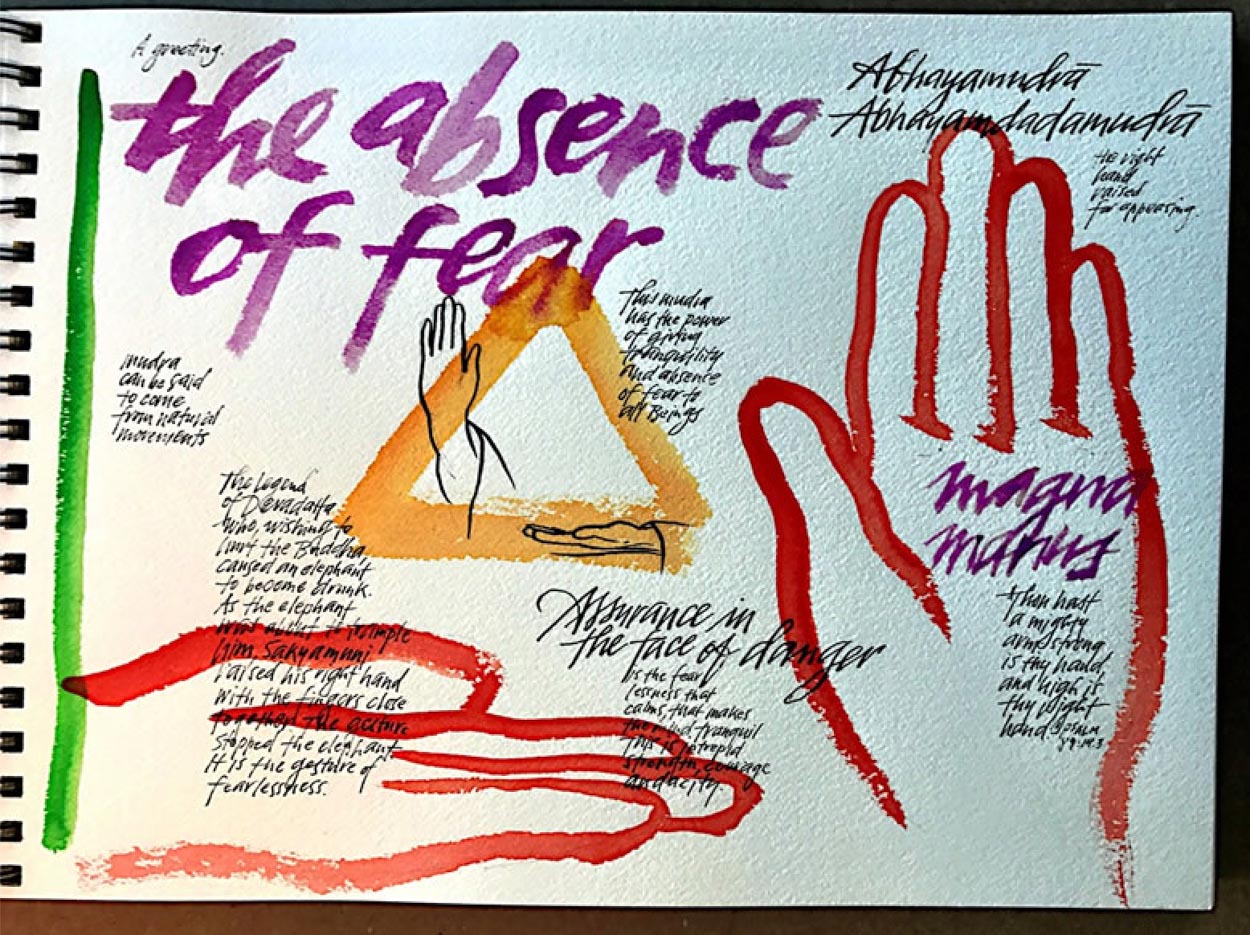 A greeting.
the absence
of fear
Abhayamudrā
Abhayamdadamudrā
the right
hand
raised
for appeasing.
mudra
can be said
to come
from natural
movements
This mudra
has the power
of giving
tranquility
and absence
of fear to
all Beings
The legend
of Devadatta
who, wishing to
hurt the Buddha
caused an elephant
to become drunk.
As the elephant
was about to trample
him, Sakyamuni
raised his right hand
with the fingers close
together the gesture
stopped the elephant
It is the gesture of
fearlessness.
Assurance in
the face of danger
Is the fear
lessness that
calms, that makes
the mind tranquil
This is intrepid
strength, courage
audacity.
magna
manus
Thou hast
a mighty
arm, strong
is thy hand
and high is
thy right
hand